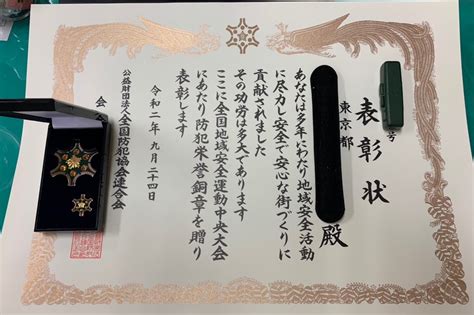 表彰状
号
東京都
殿
あなたは多年にわたり地域安全活動
に尽力し安全で安心な街づくりに
貢献されました
その功労は多大であります
ここに全国地域安全運動中央大会
にあたり防犯栄誉銅章を贈り
表彰します
令和二年九月二十四日
公益財団法人全国防犯協会連合会
会